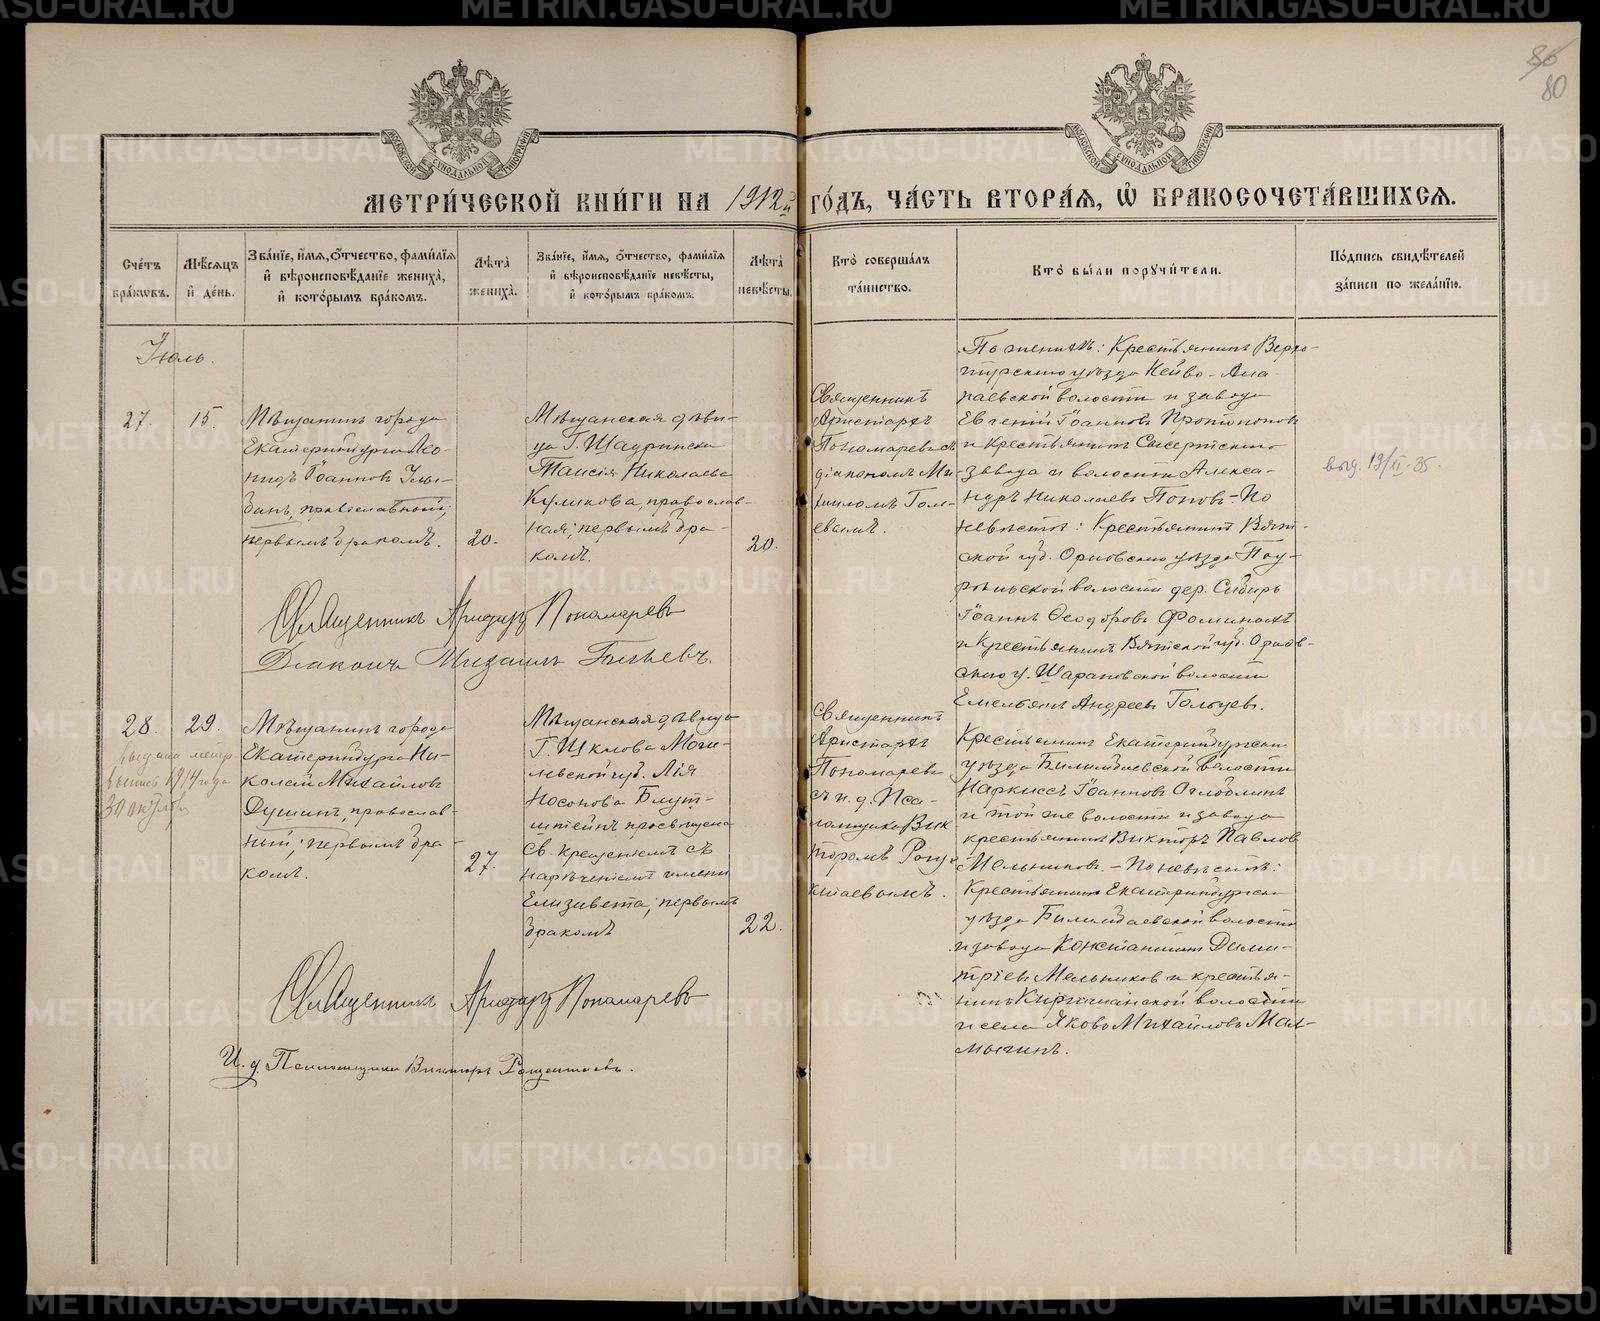 86
80
МЕТРИ́ЧЕСКОЙ КНИ́ГИ НА 1912й ГО́ДЪ, ЧА́СТЬ ВТОРА́Я, Ѽ БРАКОСОЧЕТА́ВШИХСЯ.
Сче́тъ бра́кωвъ.
Мѣ́сяцъ и҆ де́нь.
Зва́нїе, и҆́мя, ѻ҆́тчество, фами́лїя и҆ вѣроисповѣ́данїе жениха̀, и҆ кото́рымъ бра́комъ.
Лѣ́та жениха̀.
Зва́нїе, и҆́мя, ѻ҆́тчество, фами́лїя и҆ вѣроисповѣ́данїе невѣ́сты, и҆ кото́рымъ бра́комъ.
Лѣ́та невѣ́сты.
Кто̀ соверша́лъ та́инство.
Кто̀ бы́ли порꙋчи́тели.
По́дпись свидѣ́телей за́писи по жела́нїю.
Іюль.
27.
15.
Мѣщанинъ города
Екатеринбурга Лео-
нидъ Іоанновъ
православный,
первымъ бракомъ.
20.
Мѣщанская дѣви-
ца г. Шадринска
Таисія Николаева
Куликова, православ-
ная, первымъ бра-
комъ.
20.
Священникъ
Аристархъ
Пономаревъ съ
діакономъ Ми-
хаиломъ
По женихѣ: Крестьянинъ Верхо-
турскаго уѣзда Нейво-Ала-
паевской волости и завода
Евгеній Іоанновъ Протопоповъ
и крестьянинъ Сысертскаго
завода и волости Алекса-
ндръ Николаевъ Поповъ. - По
невѣстѣ: Крестьянинъ Вят-
ской губ. Орловскаго уѣзда
волости дер. Сибирь
Іоаннъ Ѳеодоровъ Фоминыхъ
и крестьянинъ Вятской губ. Орлов-
скаго у. Шараповской волости
Емельянъ Андреевъ
выд. 19/II-35.
Священникъ Аристархъ Пономаревъ
Діаконъ Михаилъ
28.
29.
Выдана метр
выпись 1914 года
30 октября
Мѣщанинъ города
Екатеринбурга Ни-
колай Михайловъ
Душинъ, православ-
ный, первымъ бра-
комъ.
27.
Мѣщанская дѣвица
г. Шклова Моги-
левской губ. Лія
Носонова Блут-
штейнъ просвѣщена
св. крещеніемъ съ
нареченіемъ имени
Елизавета, первымъ
бракомъ
22.
Священникъ
Аристархъ
Пономаревъ
съ и. д. Пса-
ломщика Вик
торомъ
Крестьянинъ Екатеринбургскаго
уѣзда Билимбаевской волости
Наркиссъ Іоанновъ Оглоблинъ
и той же волости и завода
крестьянинъ Викторъ Павловъ
Мельниковъ. - По невѣстѣ:
Крестьянинъ Екатеринбургскаго
уѣзда Билимбаевской волости
и завода Константинъ Дими-
тріевъ Мельниковъ и крестья-
нинъ Киргишанской волости
и села Яковъ Михайловъ Мал-
мыгинъ.
Священникъ Аристархъ Пономаревъ
И. д. Псаломщика Викторъ